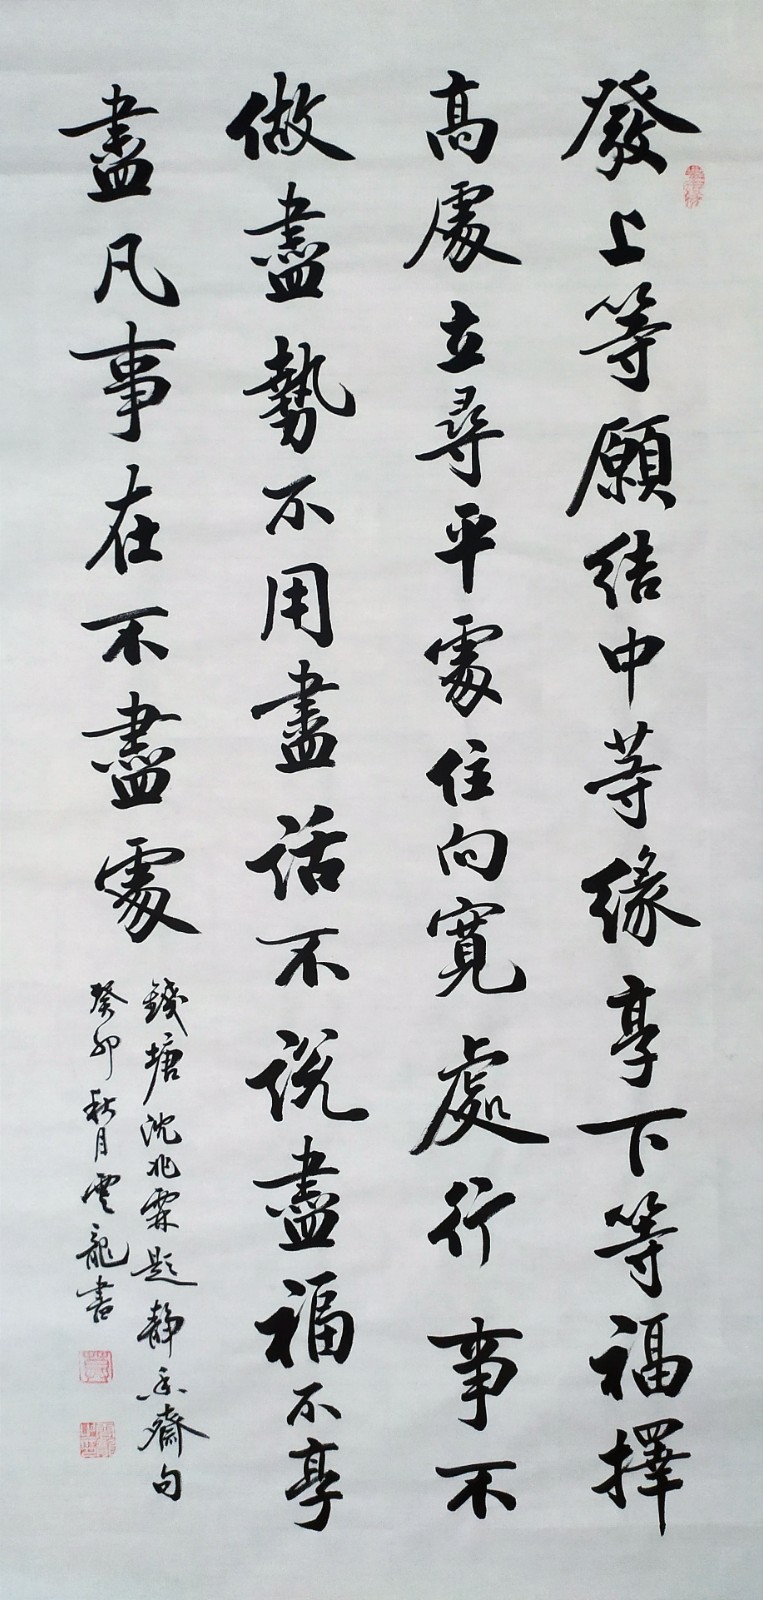 發上等願結中等緣享下等福擇
高處立尋平處住向寬處行事不
做盡勢不用盡話不说盡福不享
盡凡事在不盡處
錢塘沈兆霖題靜香齋句
癸卯秋月雲龍書